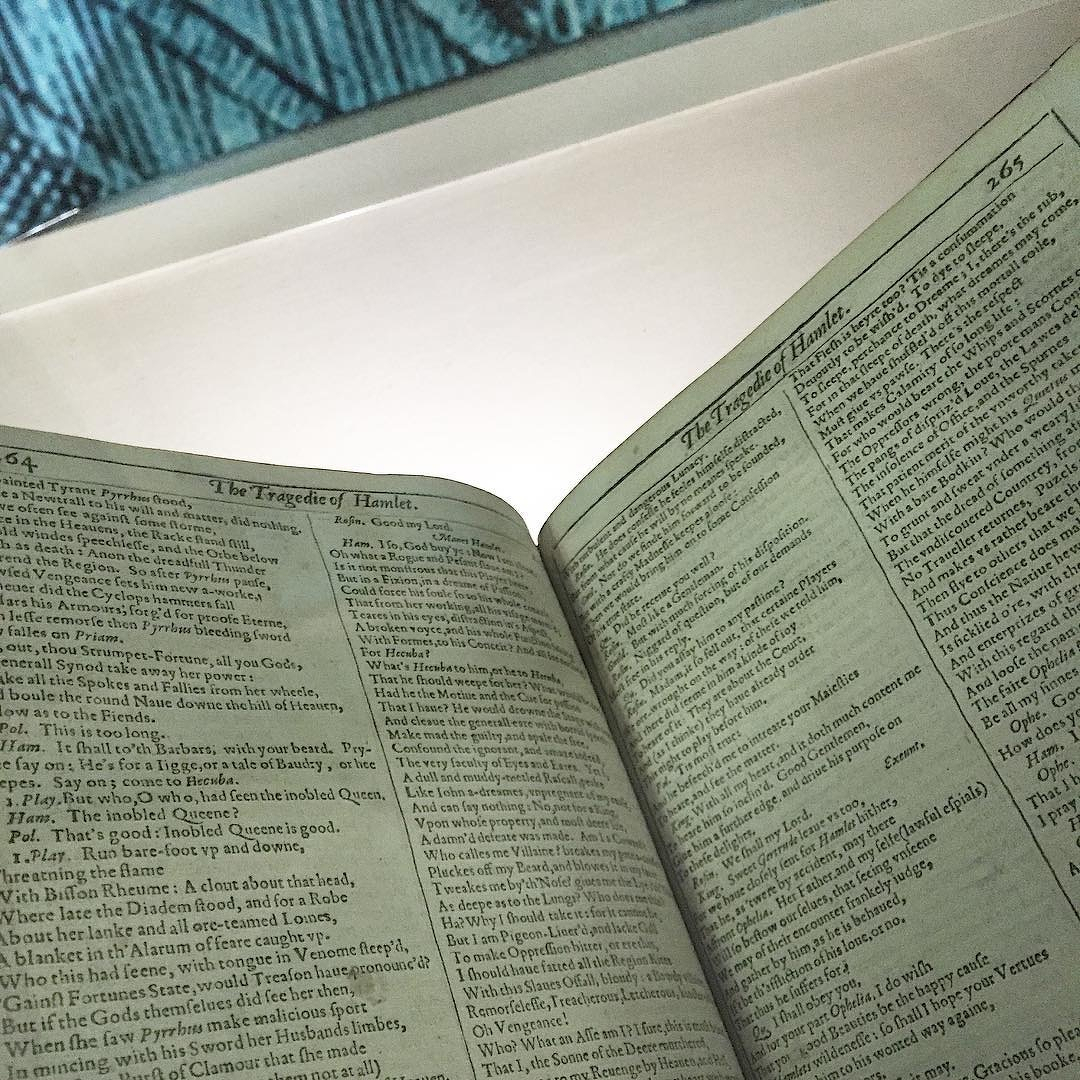 64
The Tragedie of Hamlet.
Tyrant Pyrrhus ſtood,
a Newtrall to his will and matter, did nothing.
we often ſee againſt ſome ſtorme,
ce in the Heauens, the Racke ſtand ſtill,
windes ſpeechleſſe, and the Orbe below
as death: Anon the dreadfull Thunder
rend the Region. So after Pyrrhus pauſe,
Vengeance ſets him new a-worke,
did the Cyclops hammers fall
his Armours, forg'd for proofe Eterne,
leſſe remorſe then Pyrrhus bleeding ſword
falles on Priam.
out, thou Strumpet-Fortune, all you Gods,
generall Synod take away her power:
ake all the Spokes and Fallies from her wheele,
boule the round Naue downe the hill of Heauen,
low as to the Fiends.
Pol. This is too long.
Ham. It ſhall to'th Barbars, with your beard. Pry-
ſay on: He's for a Iigge, or a tale of Baudry, or hee
epes. Say on; come to Hecuba.
1.Play. But who, O who, had ſeen the inobled Queen.
Ham. The inobled Queene?
Pol. That's good: Inobled Queene is good.
1.Play. Run bare-foot vp and downe,
Threatning the flame
With Biſſon Rheume: A clout about that head,
Where late the Diadem ſtood, and for a Robe
About her lanke and all ore-teamed Loines,
A blanket in th'Alarum of feare caught vp.
Who this had ſeene, with tongue in Venome ſteep'd,
'Gainſt Fortunes State, would Treaſon haue pronounc'd?
But if the Gods themſelues did ſee her then,
When ſhe ſaw Pyrrhus make malicious ſport
In mincing with his Sword her Husbands limbes,
Burſt of Clamour that ſhe made
them not at all)
Roſin. Good my Lord.
Manet Hamlet.
Ham. I ſo, God buy'ye: Now I am
Oh what a Rogue and Peſant ſlaue am I?
Is it not monſtrous that this Player heere,
But in a Fixion, in a dreame of Paſſion,
Could force his ſoule ſo to his whole
That from her working, all his viſage
Teares in his eyes, diſtraction in's
A broken voyce, and his whole Function
With Formes, to his Conceit? And all for
For Hecuba?
What's Hecuba to him, or he to Hecuba,
That he ſhould weepe for her? What would
Had he the Motiue and the Cue for paſſion
That I haue? He would drowne the Stage
And cleaue the generall eare with horrid
Make mad the guilty, and apale the free,
Confound the ignorant, and amaze indeed,
The very faculty of Eyes and Eares. Yet I,
A dull and muddy-metled Raſcall, peake
Like Iohn a-dreames, vnpregnant of my cauſe,
And can ſay nothing: No, not for a King,
Vpon whoſe property, and moſt deere life,
A damn'd defeate was made. Am I a
Who calles me Villaine? breakes my
Pluckes off my Beard, and blowes it in my
Tweakes me by'th'Noſe? giues me the
As deepe as to the Lungs? Who does me
Ha? Why I ſhould take it: for it cannot be,
But I am Pigeon-Liuer'd, and lacke Gall
To make Oppreſſion bitter, or ere this,
I ſhould haue fatted all the Region Kites
With this Slaues Offall, bloudy: a Bawdy
Remorſeleſſe, Treacherous, Letcherous,
Oh Vengeance!
Who? What an Aſſe am I? I ſure, this is
That I, the Sonne of the Deere murthered,
to my Reuenge by Heauen, and
265
The Tragedie of Hamlet.
and dangerous Lunacy.
He does confeſſe he feeles himſelfe diſtracted,
from what cauſe he will by no meanes ſpeake.
Nor do we finde him forward to be ſounded,
with a crafty Madneſſe keepes aloofe:
would bring him on to ſome Confeſſion
true ſtate.
Did he receiue you well?
Moſt like a Gentleman.
But with much forcing of his diſpoſition.
Niggard of queſtion, but of our demands
in his reply.
Did you aſſay him to any paſtime?
Madam, it ſo fell out, that certaine Players
wrought on the way: of theſe we told him,
there did ſeeme in him a kinde of ioy
heare of it: They are about the Court,
(as I thinke) they haue already order
night to play before him.
'Tis moſt true:
he beſeech'd me to intreate your Maieſties
heare, and ſee the matter.
King. With all my heart, and it doth much content me
heare him ſo inclin'd. Good Gentlemen,
him a further edge, and driue his purpoſe on
theſe delights.
Roſin. We ſhall my Lord.
Exeunt.
King. Sweet Gertrude leaue vs too,
we haue cloſely ſent for Hamlet hither,
he, as 'twere by accident, may there
affront Ophelia. Her Father, and my ſelfe (lawful eſpials)
Will ſo beſtow our ſelues, that ſeeing vnſeene
We may of their encounter frankely iudge,
And gather by him, as he is behaued,
If't be th'affliction of his loue, or no,
That thus he ſuffers for.
Qu. I ſhall obey you,
And for your part Ophelia, I do wiſh
That your good Beauties be the happy cauſe
Hamlets wildeneſſe: ſo ſhall I hope your Vertues
him to his wonted way againe,
Gracious ſo pleaſe
this booke,
That Fleſh is heyre too? 'Tis a conſummation
Deuoutly to be wiſh'd. To dye to ſleepe,
To ſleepe, perchance to Dreame; I, there's the rub,
For in that ſleepe of death, what dreames may come,
When we haue ſhuffel'd off this mortall coile,
Muſt giue vs pawſe. There's the reſpect
That makes Calamity of ſo long life:
For who would beare the Whips and Scornes of
The Oppreſſors wrong, the poore mans
The pangs of diſpriz'd Loue, the Lawes
The inſolence of Office, and the Spurnes
That patient merit of the vnworthy takes,
When he himſelfe might his Quietus
With a bare Bodkin? Who would
To grunt and ſweat vnder a weary
But that the dread of ſomething
The vndiſcouered Countrey, from
No Traueller returnes, Puzels
And makes vs rather beare
Then flye to others that we
Thus Conſcience does make
And thus the Natiue hew
Is ſicklied o're, with the
And enterprizes of
With this regard
And looſe the name
The faire Ophelia
Be all my ſinnes
Ophe. Good
How does your
Ham. I
Ophe.
That I
I pray